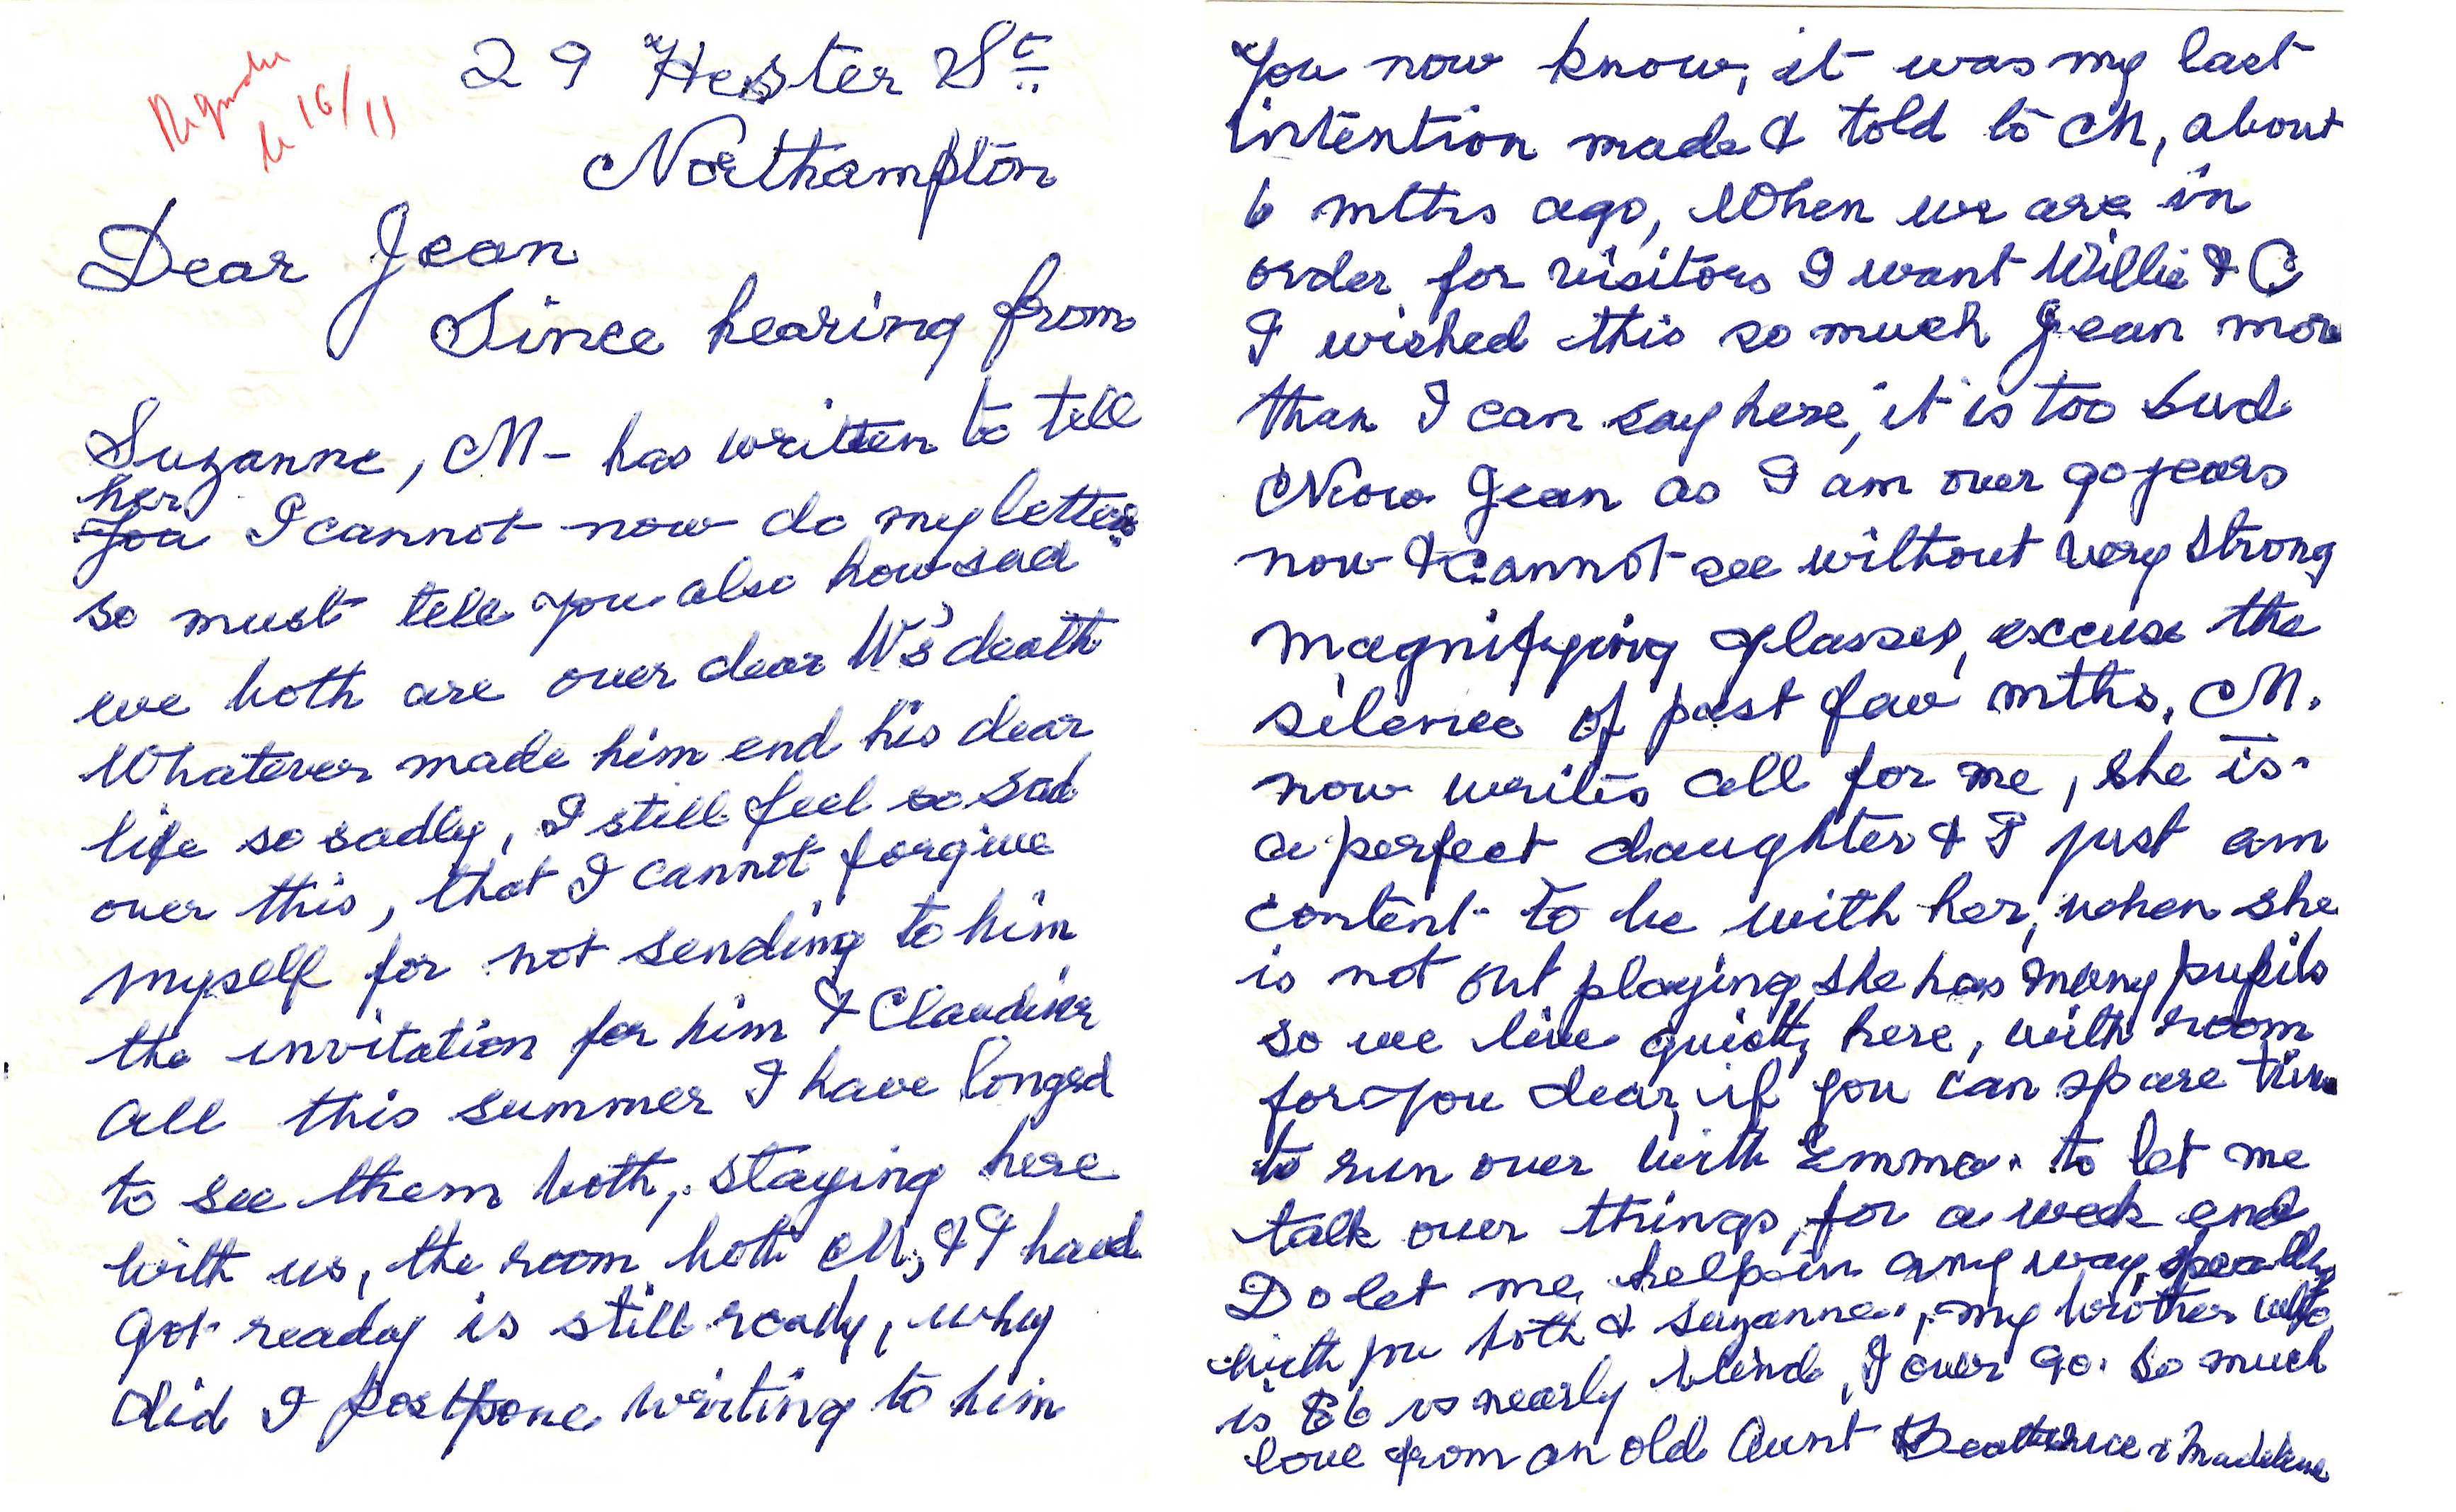 29 Hester St.
Northampton
le 16/11
Dear Jean
Since hearing from
Suzanne, M - has written to tell
her
you I cannot now do my letters
so must tell you also how sad
we both are over dear W's death
Whatever made him end his dear
life so sadly, I still feel so sad
over this, that I cannot forgive
myself for not sending to him
the invitation for him & Claudine
all this summer I have longed
to see them both, staying here
with us, the room both M, & I haad
got ready is still ready, why
did I postpone writing to him
You now know, it was my last
intention made & told to M, about
6 mths ago, When we are in
order for visitors I want Willie & C
I wished this so much Jean more
than I can say here, it is too sud
Now Jean as I am over 90 years
now & cannot see without very strong
magnifying glasses, excuse the
silence of past few mths, M.
now writes all for me, she is
a perfect daughter & I just am
content to be with her, when she
is not out playing, she has many pupils
so we live quietly here, with room
for you dear, if you can spare time
to run over with Emma. to let me
talk over things, for a week end
Do let me help in any way,
with you both & Suzanne, my brother who
is 86 is nearly blind, I over 90. so much
love from an old Aunt Beatrice & Madeleine